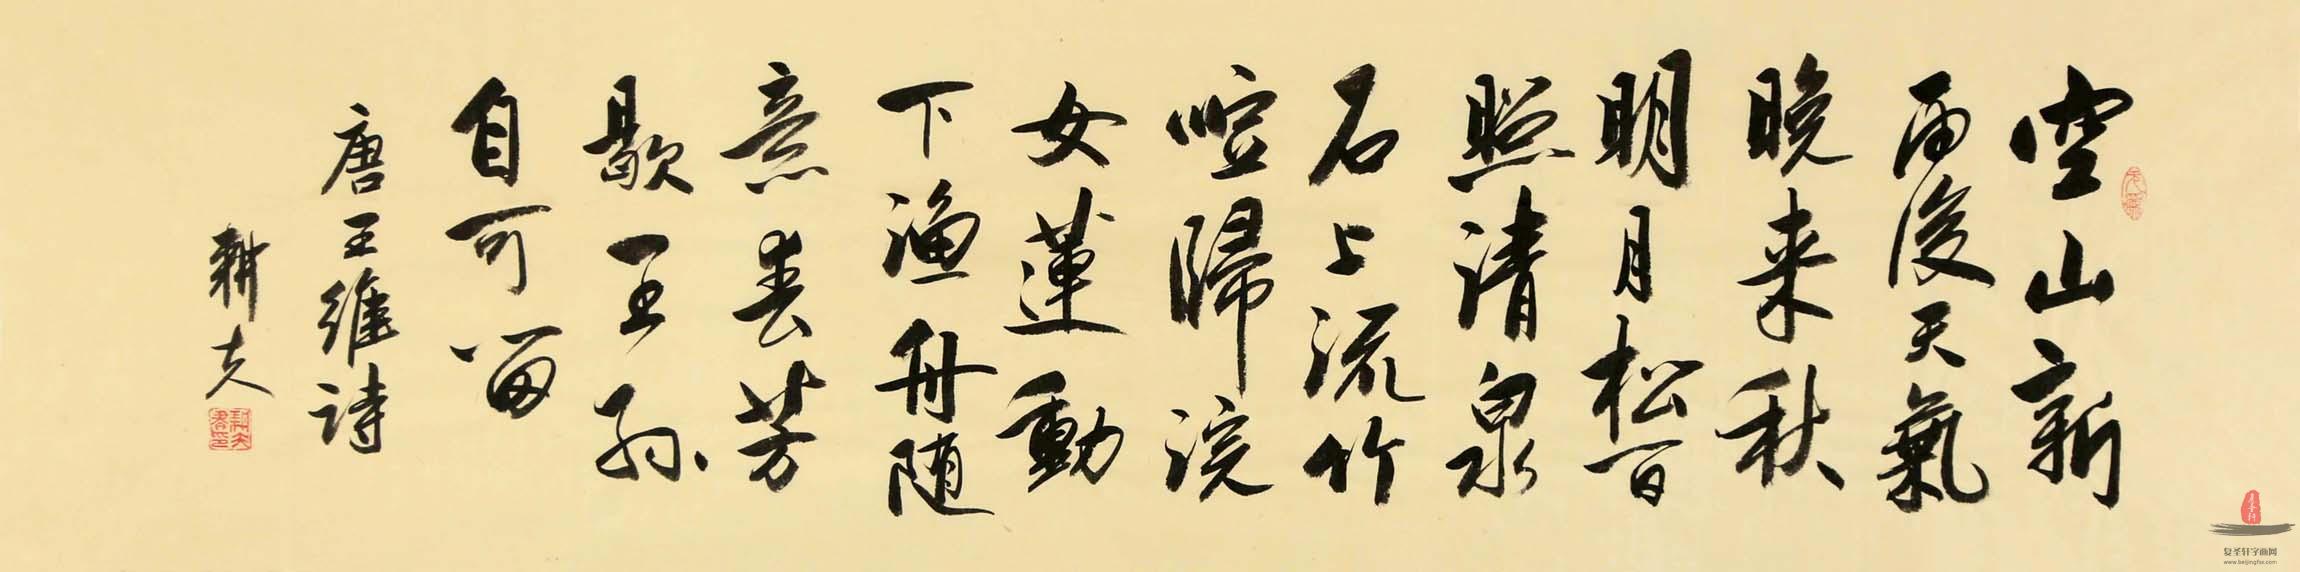 空山新
雨後天氣
晚来秋
明月松間
照清泉
石上流竹
喧歸浣
女蓮動
下漁舟随
意春芳
歇王孫
自可留
唐王維詩
耕夫
复圣轩字画网
www.beijingfsx.com